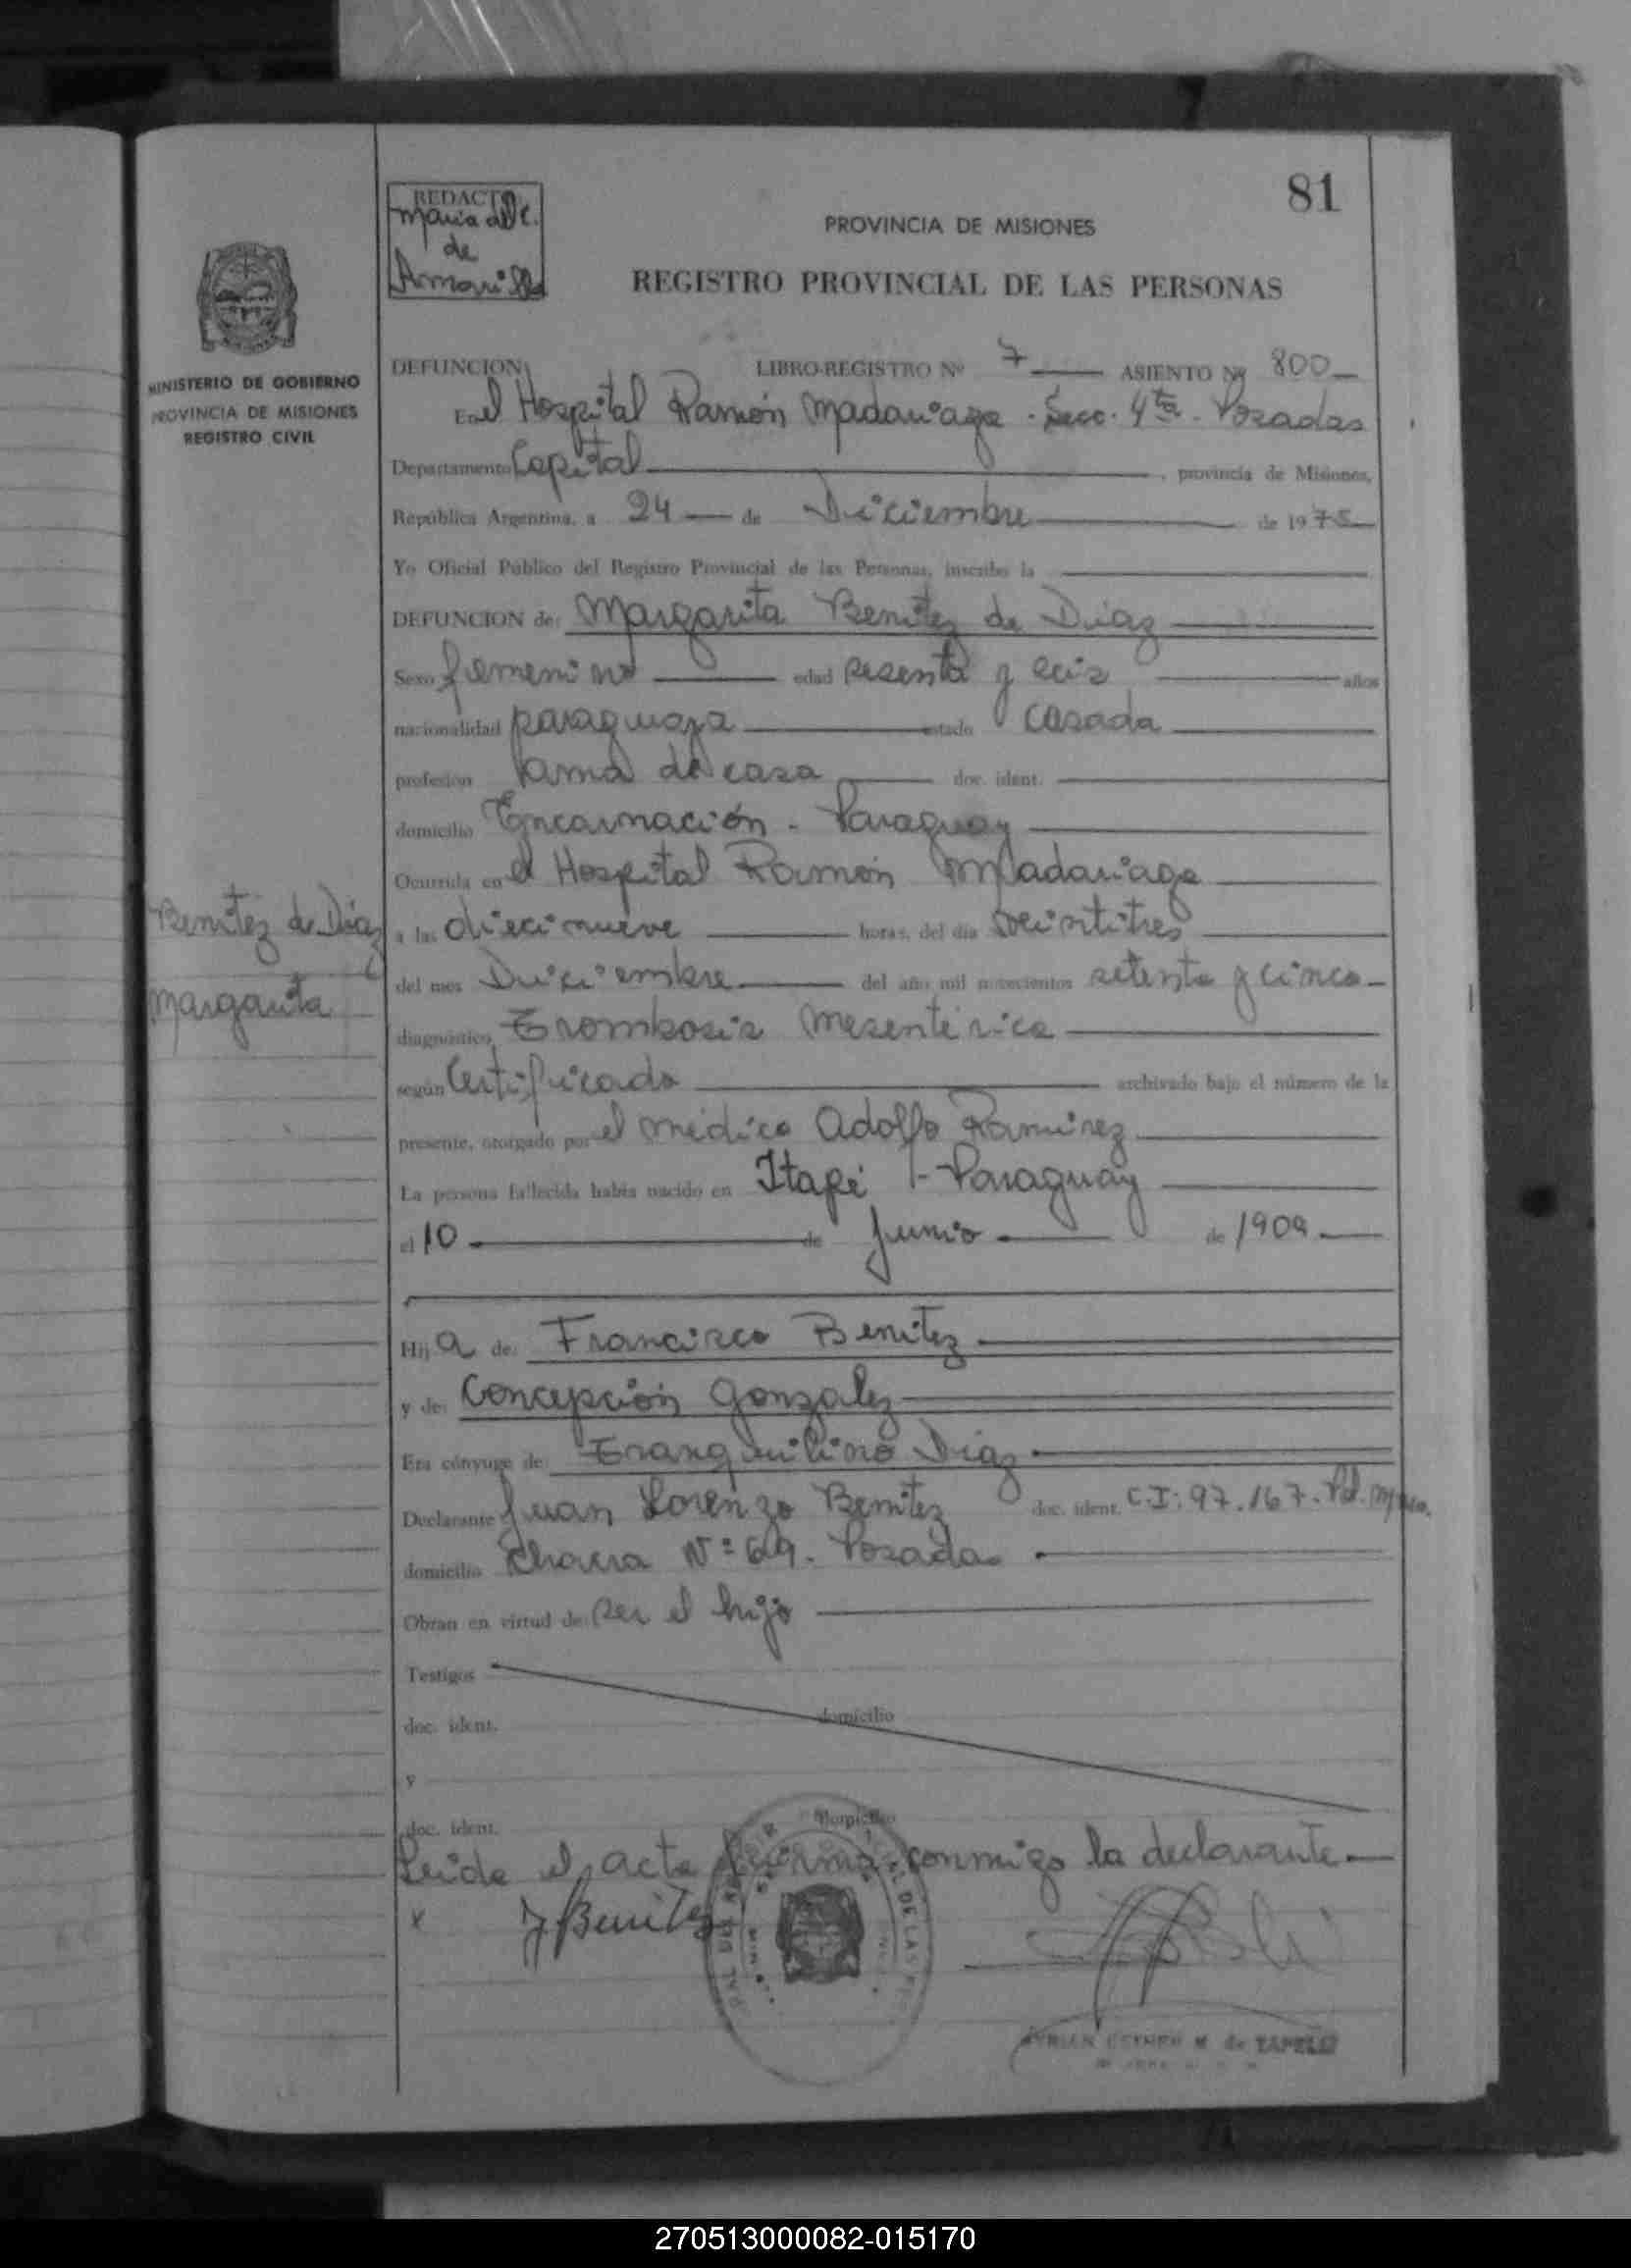 81
REDACTO
Maria del C.
de
Amarilla
PROVINCIA DE MISIONES
REGISTRO PROVINCIAL DE LAS PERSONAS
MINISTERIO DE GOBIERNO
PROVINCIA DE MISIONES
REGISTRO CIVIL
DEFUNCION LIBRO-REGISTRO Nº 7 ASIENTO Nº 800
En el Hospital Ramón Madariaga - Secc. 4ta - Posadas
Departamento Capital, provincia de Misiones,
República Argentina, a 24 de Diciembre de 1975
Yo Oficial Público del Registro Provincial de las Personas, inscribo la
DEFUNCION de: Margarita Benitez de Diaz
Sexo femenino edad sesenta y seis años
nacionalidad paraguaya estado casada
profesión ama de casa doc. ident.
domicilio Encarnación - Paraguay
Ocurrida en el Hospital Ramón Madariaga
Benitez de Diaz
Margarita
a las diecinueve horas, del día veintitres
del mes Diciembre del año mil novecientos setenta y cinco
diagnóstico Trombosis mesentérica
según Certificado archivado bajo el número de la
presente, otorgado por el médico Adolfo Ramirez
La persona fallecida había nacido en Itapé - Paraguay
el 10 de junio de 1909
Hij a de: Francisco Benitez
y de: Concepción Gonzalez
Era cónyuge de: Tranquilino Diaz
Declarante Juan Lorenzo Benitez doc. ident. C.I: 97.167. Pol. Mnes.
domicilio Chacra Nº 69. Posadas
Obran en virtud de: ser el hijo
Testigos
doc. ident. domicilio
y
doc. ident. domicilio
Leida el acta firma conmigo la declarante
x J Benitez
DE LAS
270513000082-015170